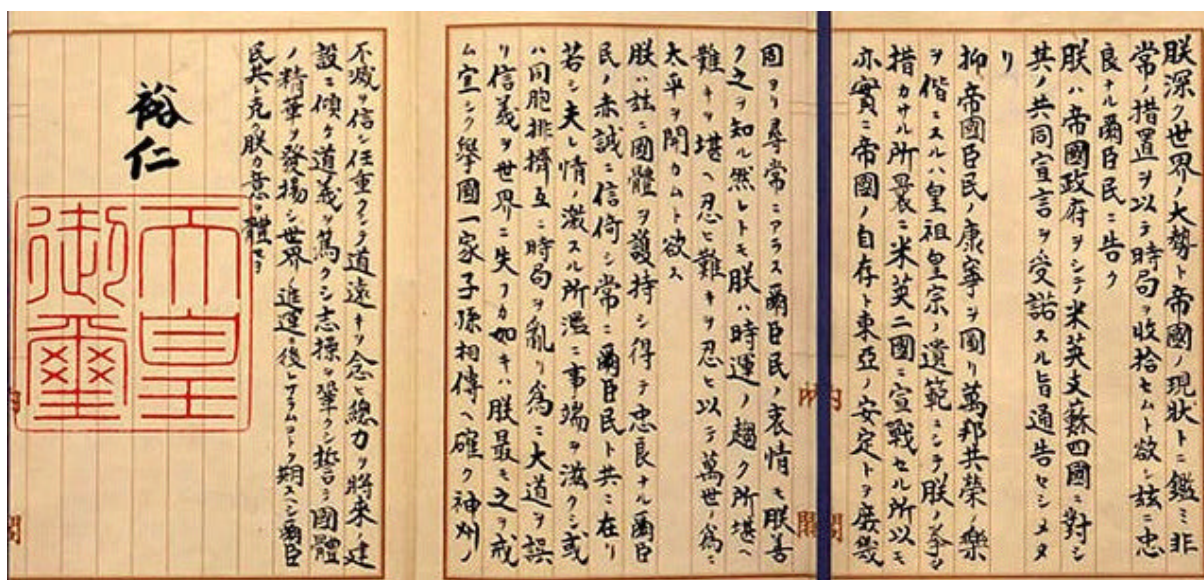 朕深ク世界ノ大勢ト帝國ノ現状トニ鑑ミ非
常ノ措置ヲ以テ時局ヲ收拾セムト欲シ茲ニ忠
良ナル爾臣民ニ告ク
朕ハ帝國政府ヲシテ米英支蘇四國ニ對シ
其ノ共同宣言ヲ受諾スル旨通告セシメタ
リ
抑〻帝國臣民ノ康寧ヲ圖リ萬邦共榮ノ樂
ヲ偕ニスルハ皇祖皇宗ノ遺範ニシテ朕ノ拳〻
措カサル所曩ニ米英二國ニ宣戰セル所以モ
亦實ニ帝國ノ自存ト東亞ノ安定トヲ庶幾
固ヨリ尋常ニアラス爾臣民ノ衷情モ朕善
ク之ヲ知ル然レトモ朕ハ時運ノ趨ク所堪ヘ
難キヲ堪ヘ忍ヒ難キヲ忍ヒ以テ萬世ノ爲ニ
太平ヲ開カムト欲ス
朕ハ茲ニ國體ヲ護持シ得テ忠良ナル爾臣
民ノ赤誠ニ信倚シ常ニ爾臣民ト共ニ在リ
若シ夫レ情ノ激スル所濫ニ事端ヲ滋クシ或
ハ同胞排擠互ニ時局ヲ亂リ爲ニ大道ヲ誤
リ信義ヲ世界ニ失フカ如キハ朕最モ之ヲ戒
ム宜シク擧國一家子孫相傳ヘ確ク神州ノ
不滅ヲ信シ任重クシテ道遠キヲ念ヒ總力ヲ將來ノ建
設ニ傾ケ道義ヲ篤クシ志操ヲ鞏クシ誓テ國體
ノ精華ヲ發揚シ世界ノ進運ニ後レサラムコトヲ期スヘシ爾臣
民其レ克ク朕カ意ヲ體セヨ
裕仁
天皇
御璽
内閣
内閣
内閣